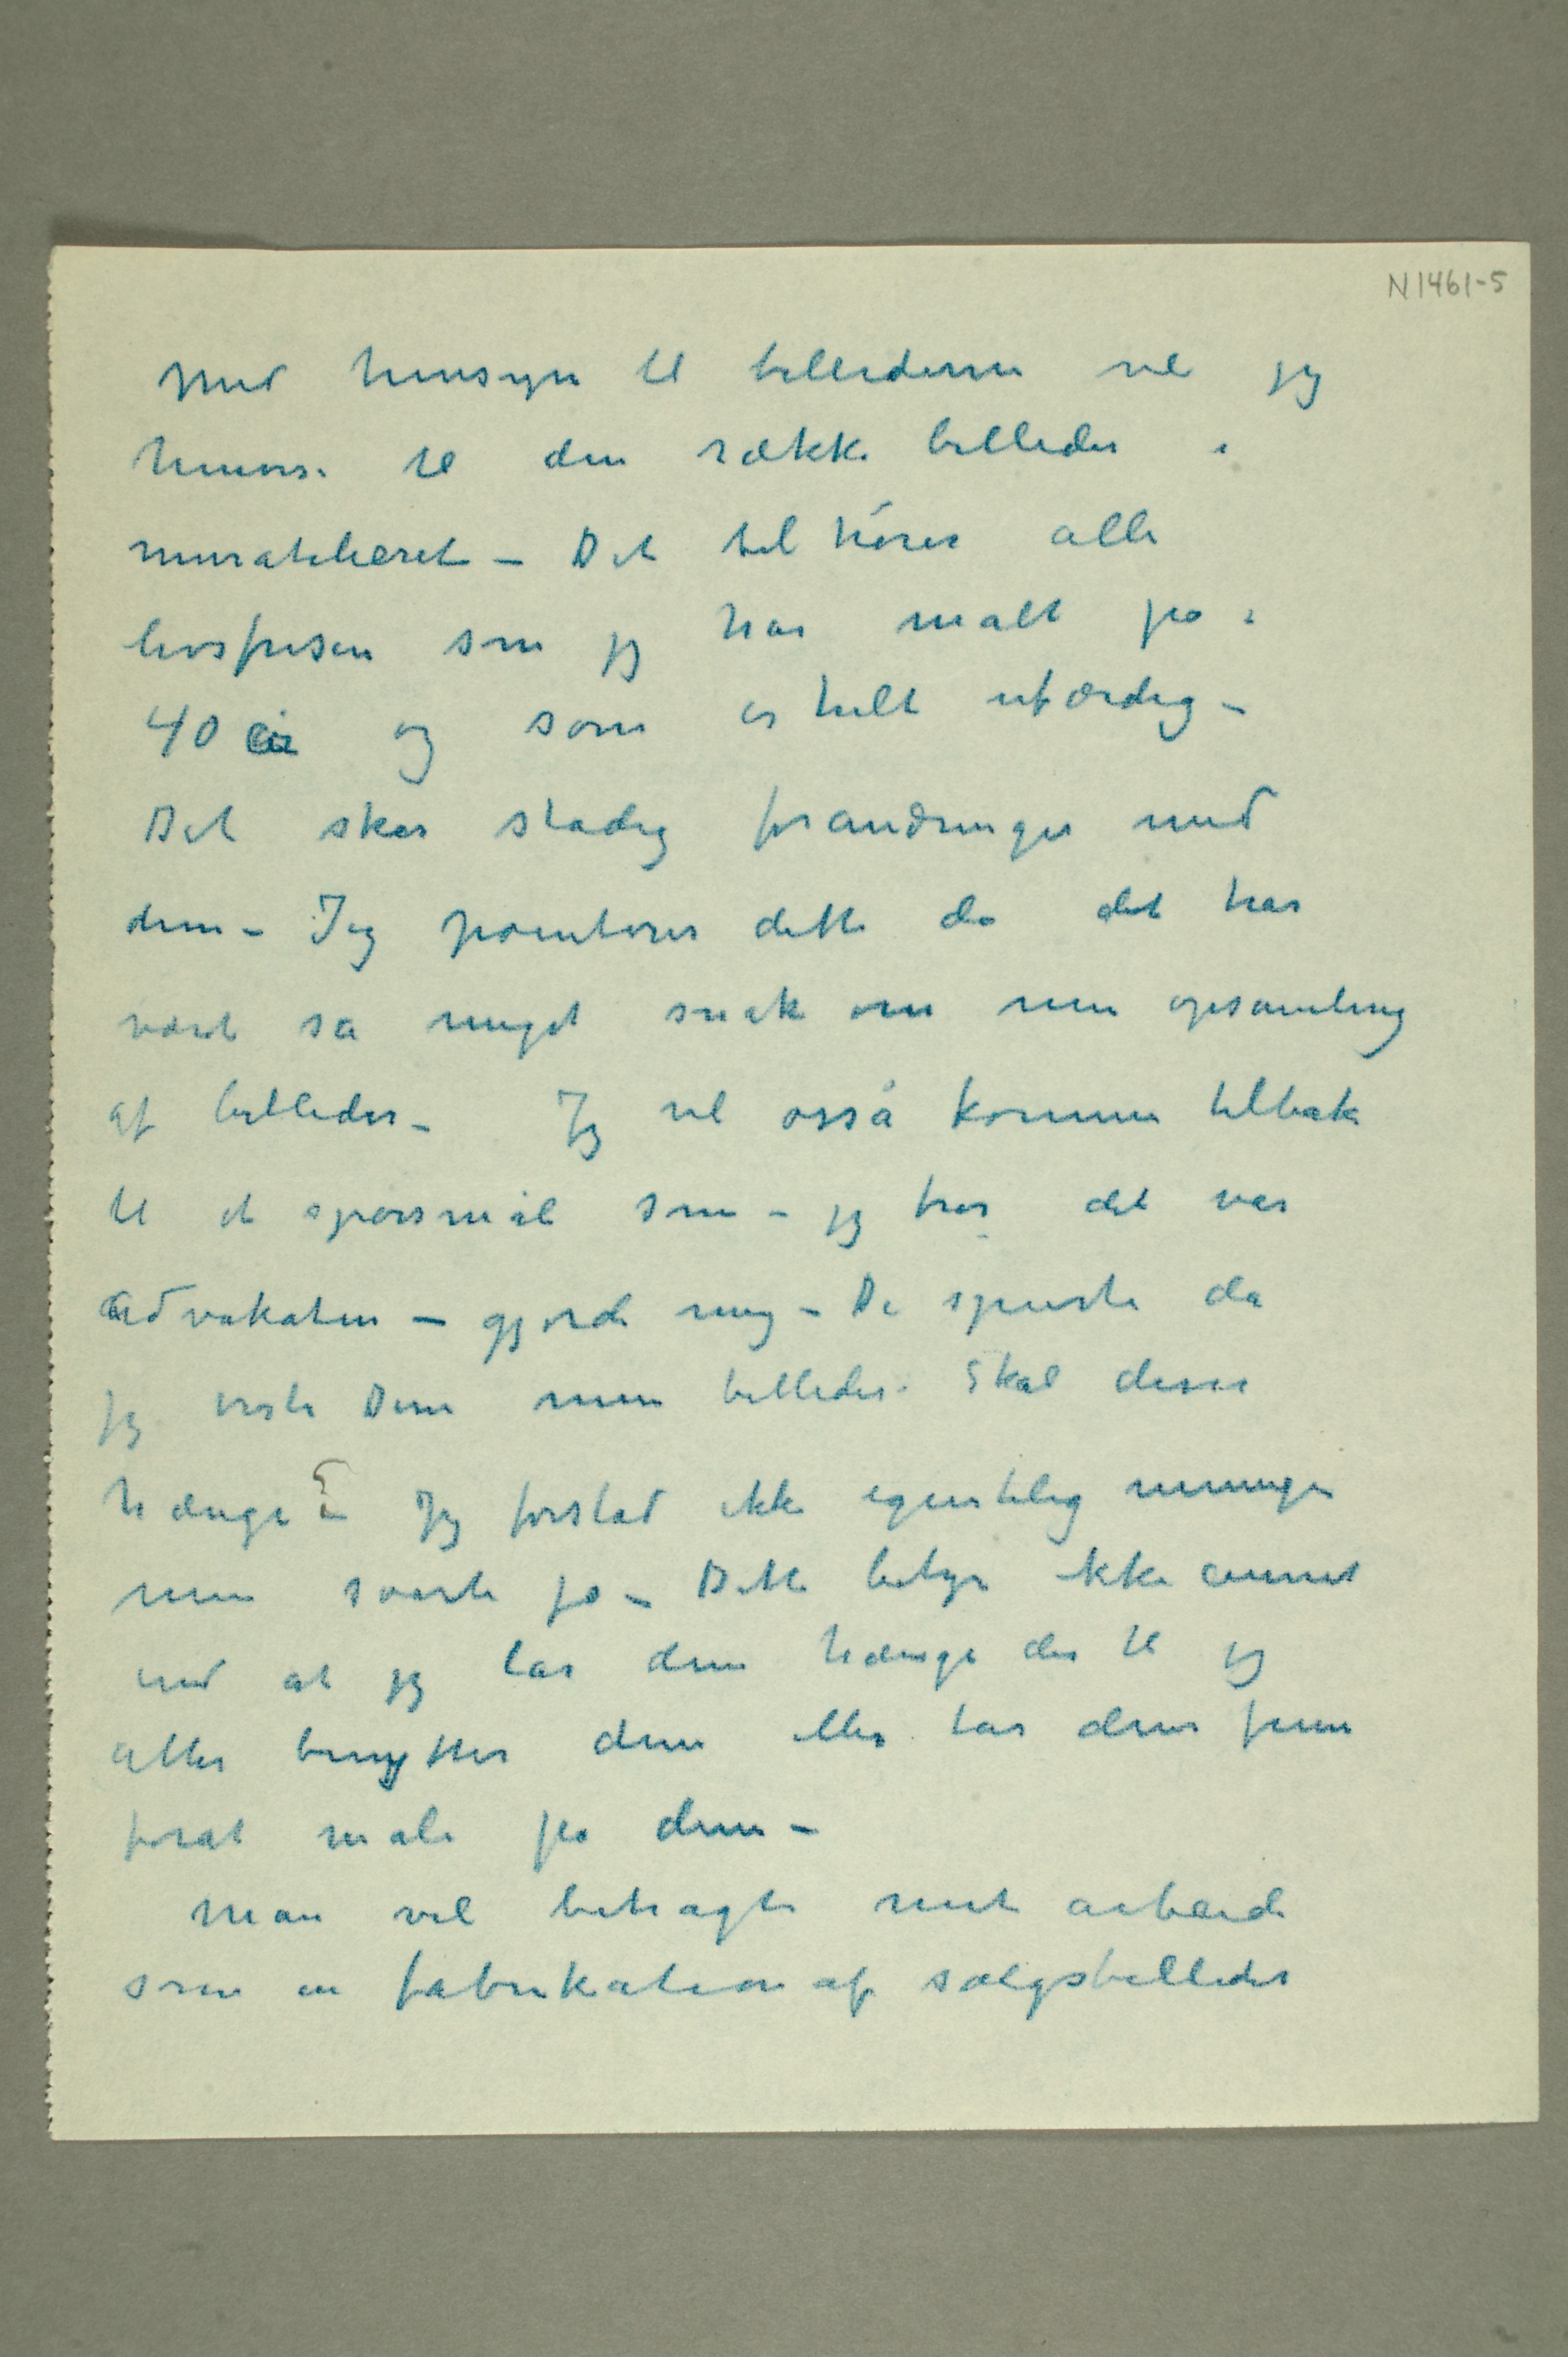 N1461-5
Med hensyn til billederne vil jeg
henvise til den række billeder i
muratelieret – Det tilhörer alle
livsfrisen som jeg har malt på i
40 år og som er helt ufærdig –
Det sker stadig forandringer med
dem – Jeg pointerer dette da det har
vært så meget snak om min opsamling
af billeder – Jeg vil osså komme tilbake
til et spørsmål som – jeg tror det var
advokaten – gjorde mig – De spurte da
jeg viste Dem mine billeder. Skal disse
hænge? Jeg forstod ikke egentlig meningen
men svarte ja – Dette betyr ikke annet
end at jeg lar dem hænge der til jeg
atter benytter dem eller tar dem frem
forat male på dem –
Man vil betragte mit arbeide
som en fabrikation af salgsbilleder